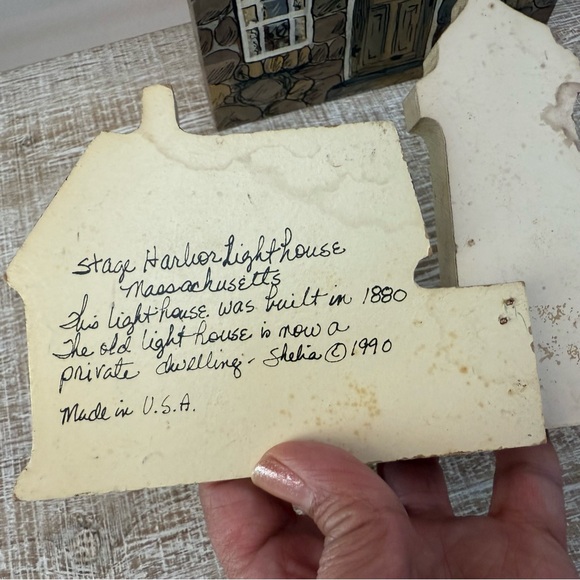 Stage Harbor Lighthouse
Massachusetts
This lighthouse was built in 1880
The old lighthouse is now a
private dwelling - Shelia © 1990
Made in U.S.A.